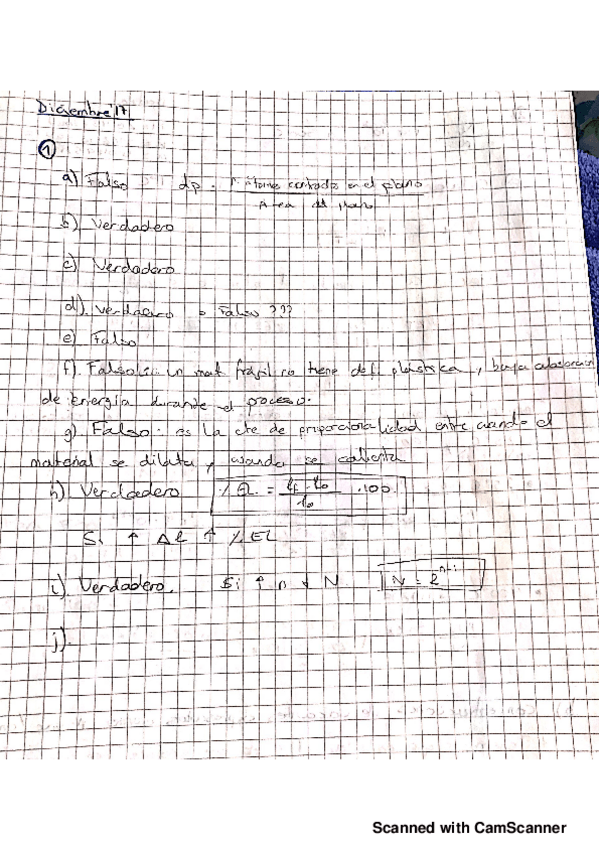 Diciembre '17
1
a) Falso dp = nº átomos centrado en el plano / Área del plano
b) Verdadero
c) Verdadero
d) Verdadero o Falso ???
e) Falso
f) Falso: un mat frágil no tiene def. plástica, baja absorción
de energía durante el proceso.
g) Falso: es la cte de proporcionalidad entre cuando el
material se dilata y cuando se calienta
h) Verdadero % El = lf - lo / lo .100
Si ↑ Δl ↑ % El
i) Verdadero. Si ↑ n N N = 2^n-1
j).
Scanned with CamScanner